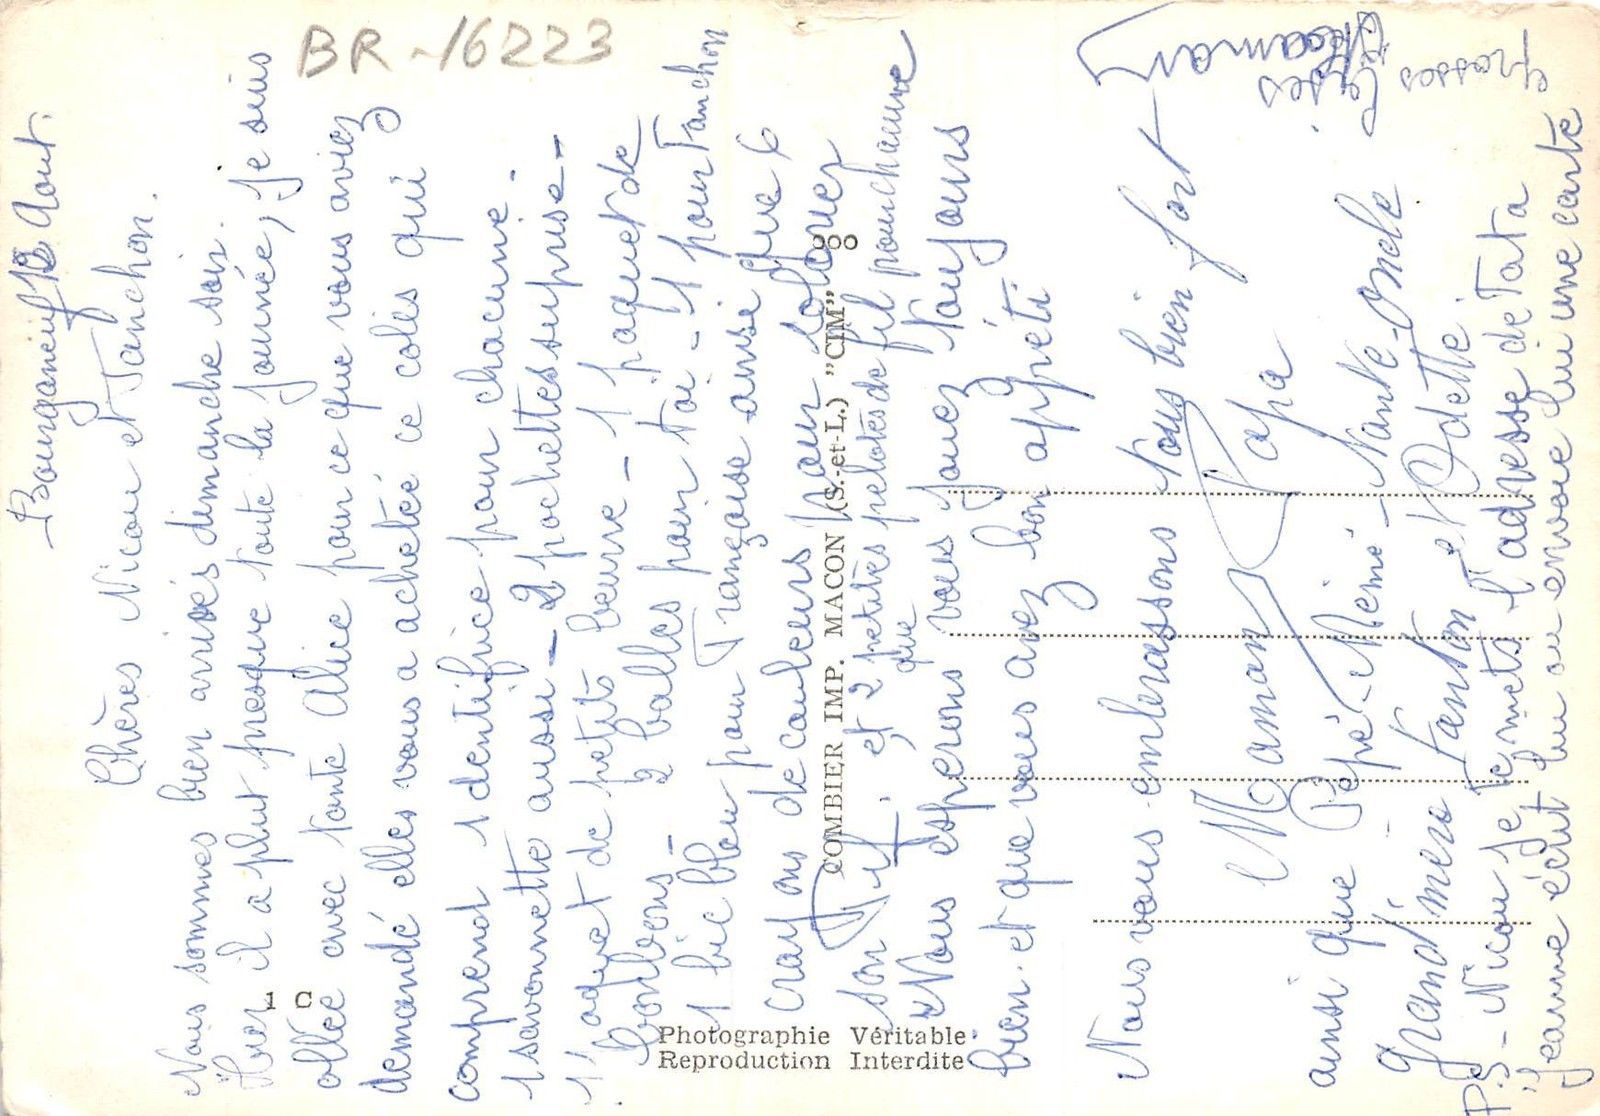 BR-16223
Bourganeuf 12 Aout.
Chères Nicou et Fanchon.
Nous sommes bien arrivés dimanche soir.
Hier il a plut presque toute la journée, je suis
allée avec tante Alice pour ce que vous aviez
demandé elles vous a achetée ce colis qui
comprend 1 dentifrice pour chacune.
1 savonnette aussi - 2 pochettes suprise -
1 paquet de petits beurre - 1 paquet de
bonbons - 2 balles pour Toi - 1 pour Fanchon
1 bic bleu pour Françoise ainsi que 6
crayons de couleurs pour colorier
son Pif, et 2 petites pelotes de fil pour chacune
Nous esperons que vous jouez toujours
bien et que vous avez bon appéti
Nous vous embrassons tous bien fort
Maman Papa
ainsi que Pépé - Mémé - tante - Oncle
Grand'mère Tonton et Odette
PS - Nicou je te mets l'adresse de Tata
Jeanne écrit lui ou envoie lui une carte
Grosses
Bises
Maman
1 C
Photographie Véritable
Reproduction Interdite
COMBIER IMP. MACON (S.-et-L.) "CIM"